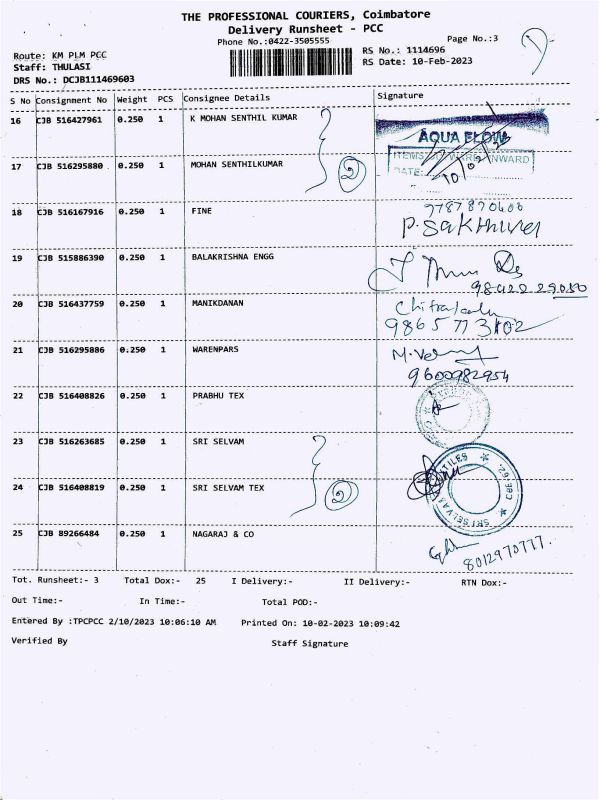 THE PROFESSIONAL COURIERS, Coimbatore
Delivery Runsheet - PCC
Phone No.:0422-3505555
Page No.:3
Route: KM PLM PCC
Staff: THULASI
DRS No.: DCJB111469603
RS No.: 1114696
RS Date: 10-Feb-2023
S No Consignment No Weight PCS Consignee Details Signature
16 CJB 516427961 0.250 1 K MOHAN SENTHIL KUMAR AQUA FLOW
17 CJB 516295880 0.250 1 MOHAN SENTHILKUMAR 2 INWARD
DATE: 10/02/23
18 CJB 516167916 0.250 1 FINE 9787870600
P. Sakthivel
19 CJB 515886390 0.250 1 BALAKRISHNA ENGG
98422 29080
20 CJB 516437759 0.250 1 MANIKDANAN
98657 73102
21 CJB 516295886 0.250 1 WARENPARS
9600982954
22 CJB 516408826 0.250 1 PRABHU TEX
23 CJB 516263685 0.250 1 SRI SELVAM
24 CJB 516408819 0.250 1 SRI SELVAM TEX 2 SRI SELVAM TEXTILES
25 CJB 89266484 0.250 1 NAGARAJ & CO 8012970777.
Tot. Runsheet:- 3 Total Dox:- 25 I Delivery:- II Delivery:- RTN Dox:-
Out Time:- In Time:- Total POD:-
Entered By :TPCPCC 2/10/2023 10:06:10 AM Printed On: 10-02-2023 10:09:42
Verified By Staff Signature